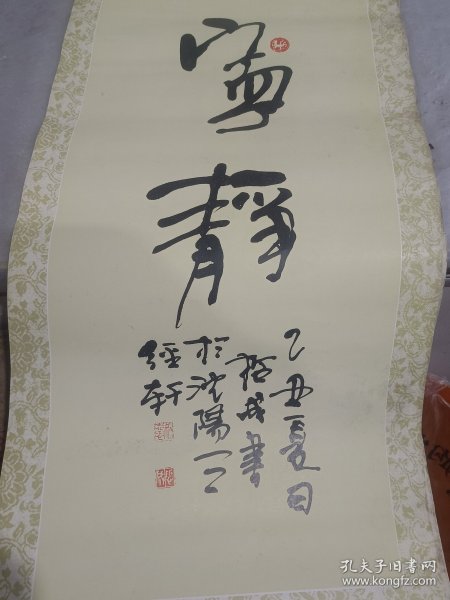 寧靜
乙丑夏日
哲成書
於瀋陽三
經軒
孔夫子旧书网
www.kongfz.com